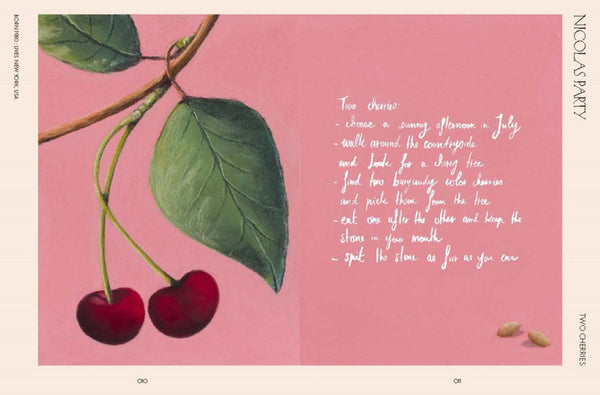 BORN 1980 · LIVES NEW YORK, USA
Two cherries:
- choose a sunny afternoon in July
- walk around the countryside
and look for a cherry tree
- find two burgundy color cherries
and pick them from the tree
- eat one after the other and keep the
stone in your mouth
- spit the stone as far as you can
NICOLAS PARTY
TWO CHERRIES
010
011